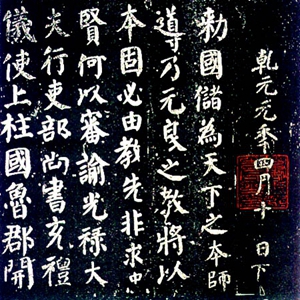 乾元元年四月十日下
勅國儲為天下之本師
導乃元良之教將以
本固必由教先非求忠
賢何以審諭光禄大
夫行吏部尚書充禮
儀使上柱國魯郡開